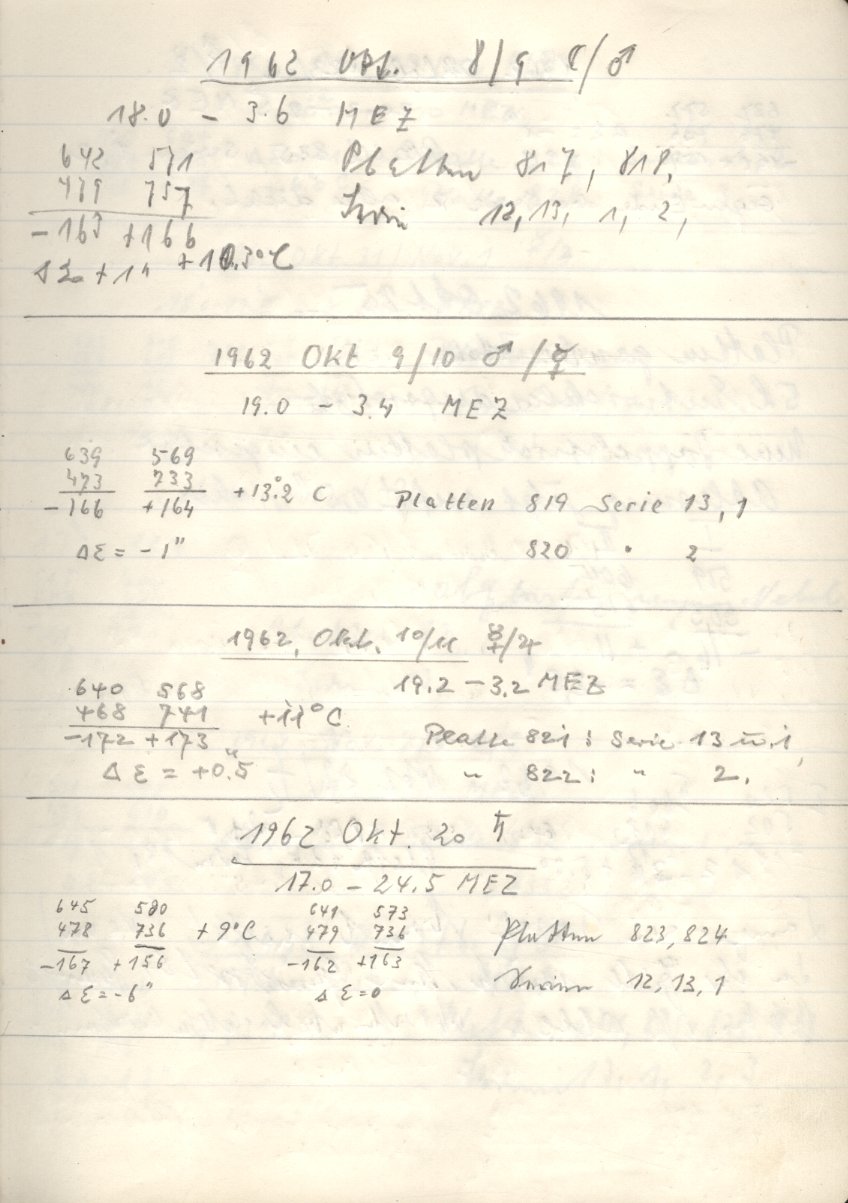 1962 Okt. 8/9 ☾/♂
18.0 – 3.6 MEZ
642 571 Platten 817, 818,
479 757 Serien 12, 13, 1, 2,
–163 +166
+10.3°C
1962 Okt 9/10 ♂/☿
19.0 – 3.4 MEZ
639 569
473 733 +13°.2 C Platten 819 Serie 13, 1
–166 +164
Δε = –1" 820 " 2
1962, Okt. 10/11 ☿/♃
640 568 19.2 – 3.2 MEZ
468 741 +11°C
–172 +173 Platte 821: Serie 13 u. 1,
Δε = +0.5" " 822: " 2.
1962 Okt. 20 ♄
17.0 – 24.5 MEZ
645 580 641 573
478 736 +9°C 479 736 Platten 823, 824
–167 +156 –162 +163
Δε = –6" Δε = 0 Serien 12, 13, 1